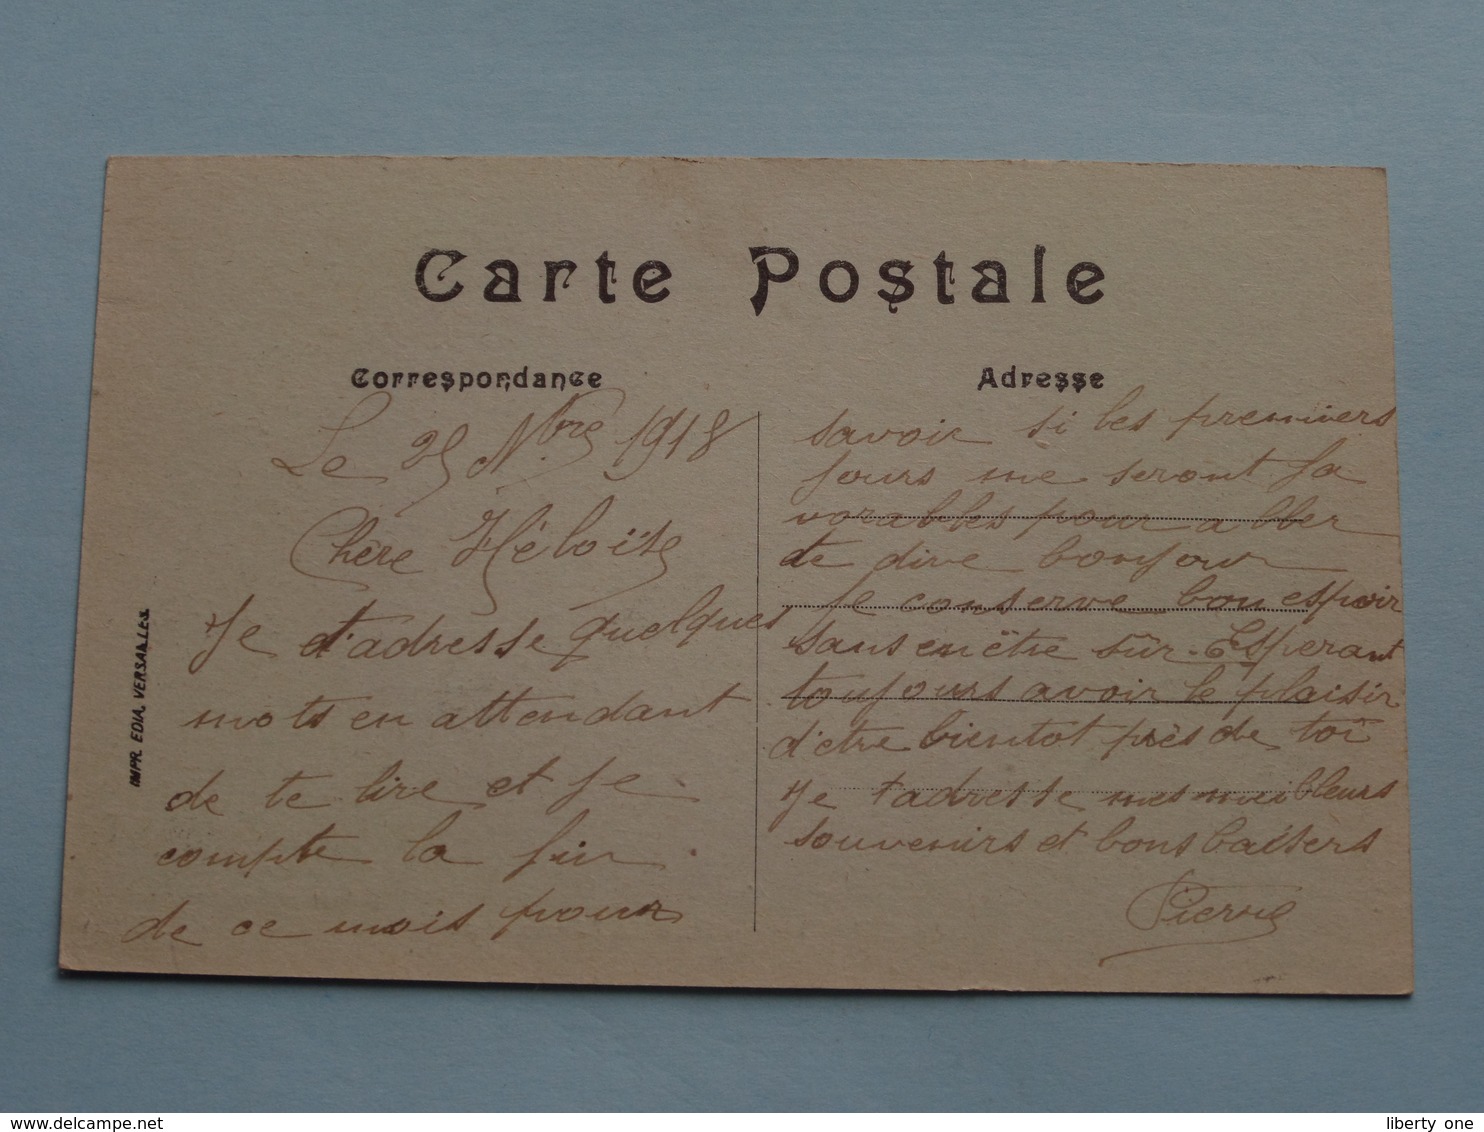 Carte Postale
Correspondance
Le 25 Nbre 1918
Chère Héloïse
Je t'adresse quelques
mots en attendant
de te lire et je
compte la fin
de ce mois pour
Adresse
savoir si les premiers
jours me seront fa
vorables pour aller
te dire bonjour
Je conserve bon espoir
sans en être sûr. Esperant
toujours avoir le plaisir
d'etre bientot près de toi
Je t'adresse mes meilleurs
souvenirs et bons baisers
Pierre
IMPR. EDIA, VERSAILLES.
www.delcampe.net
liberty one